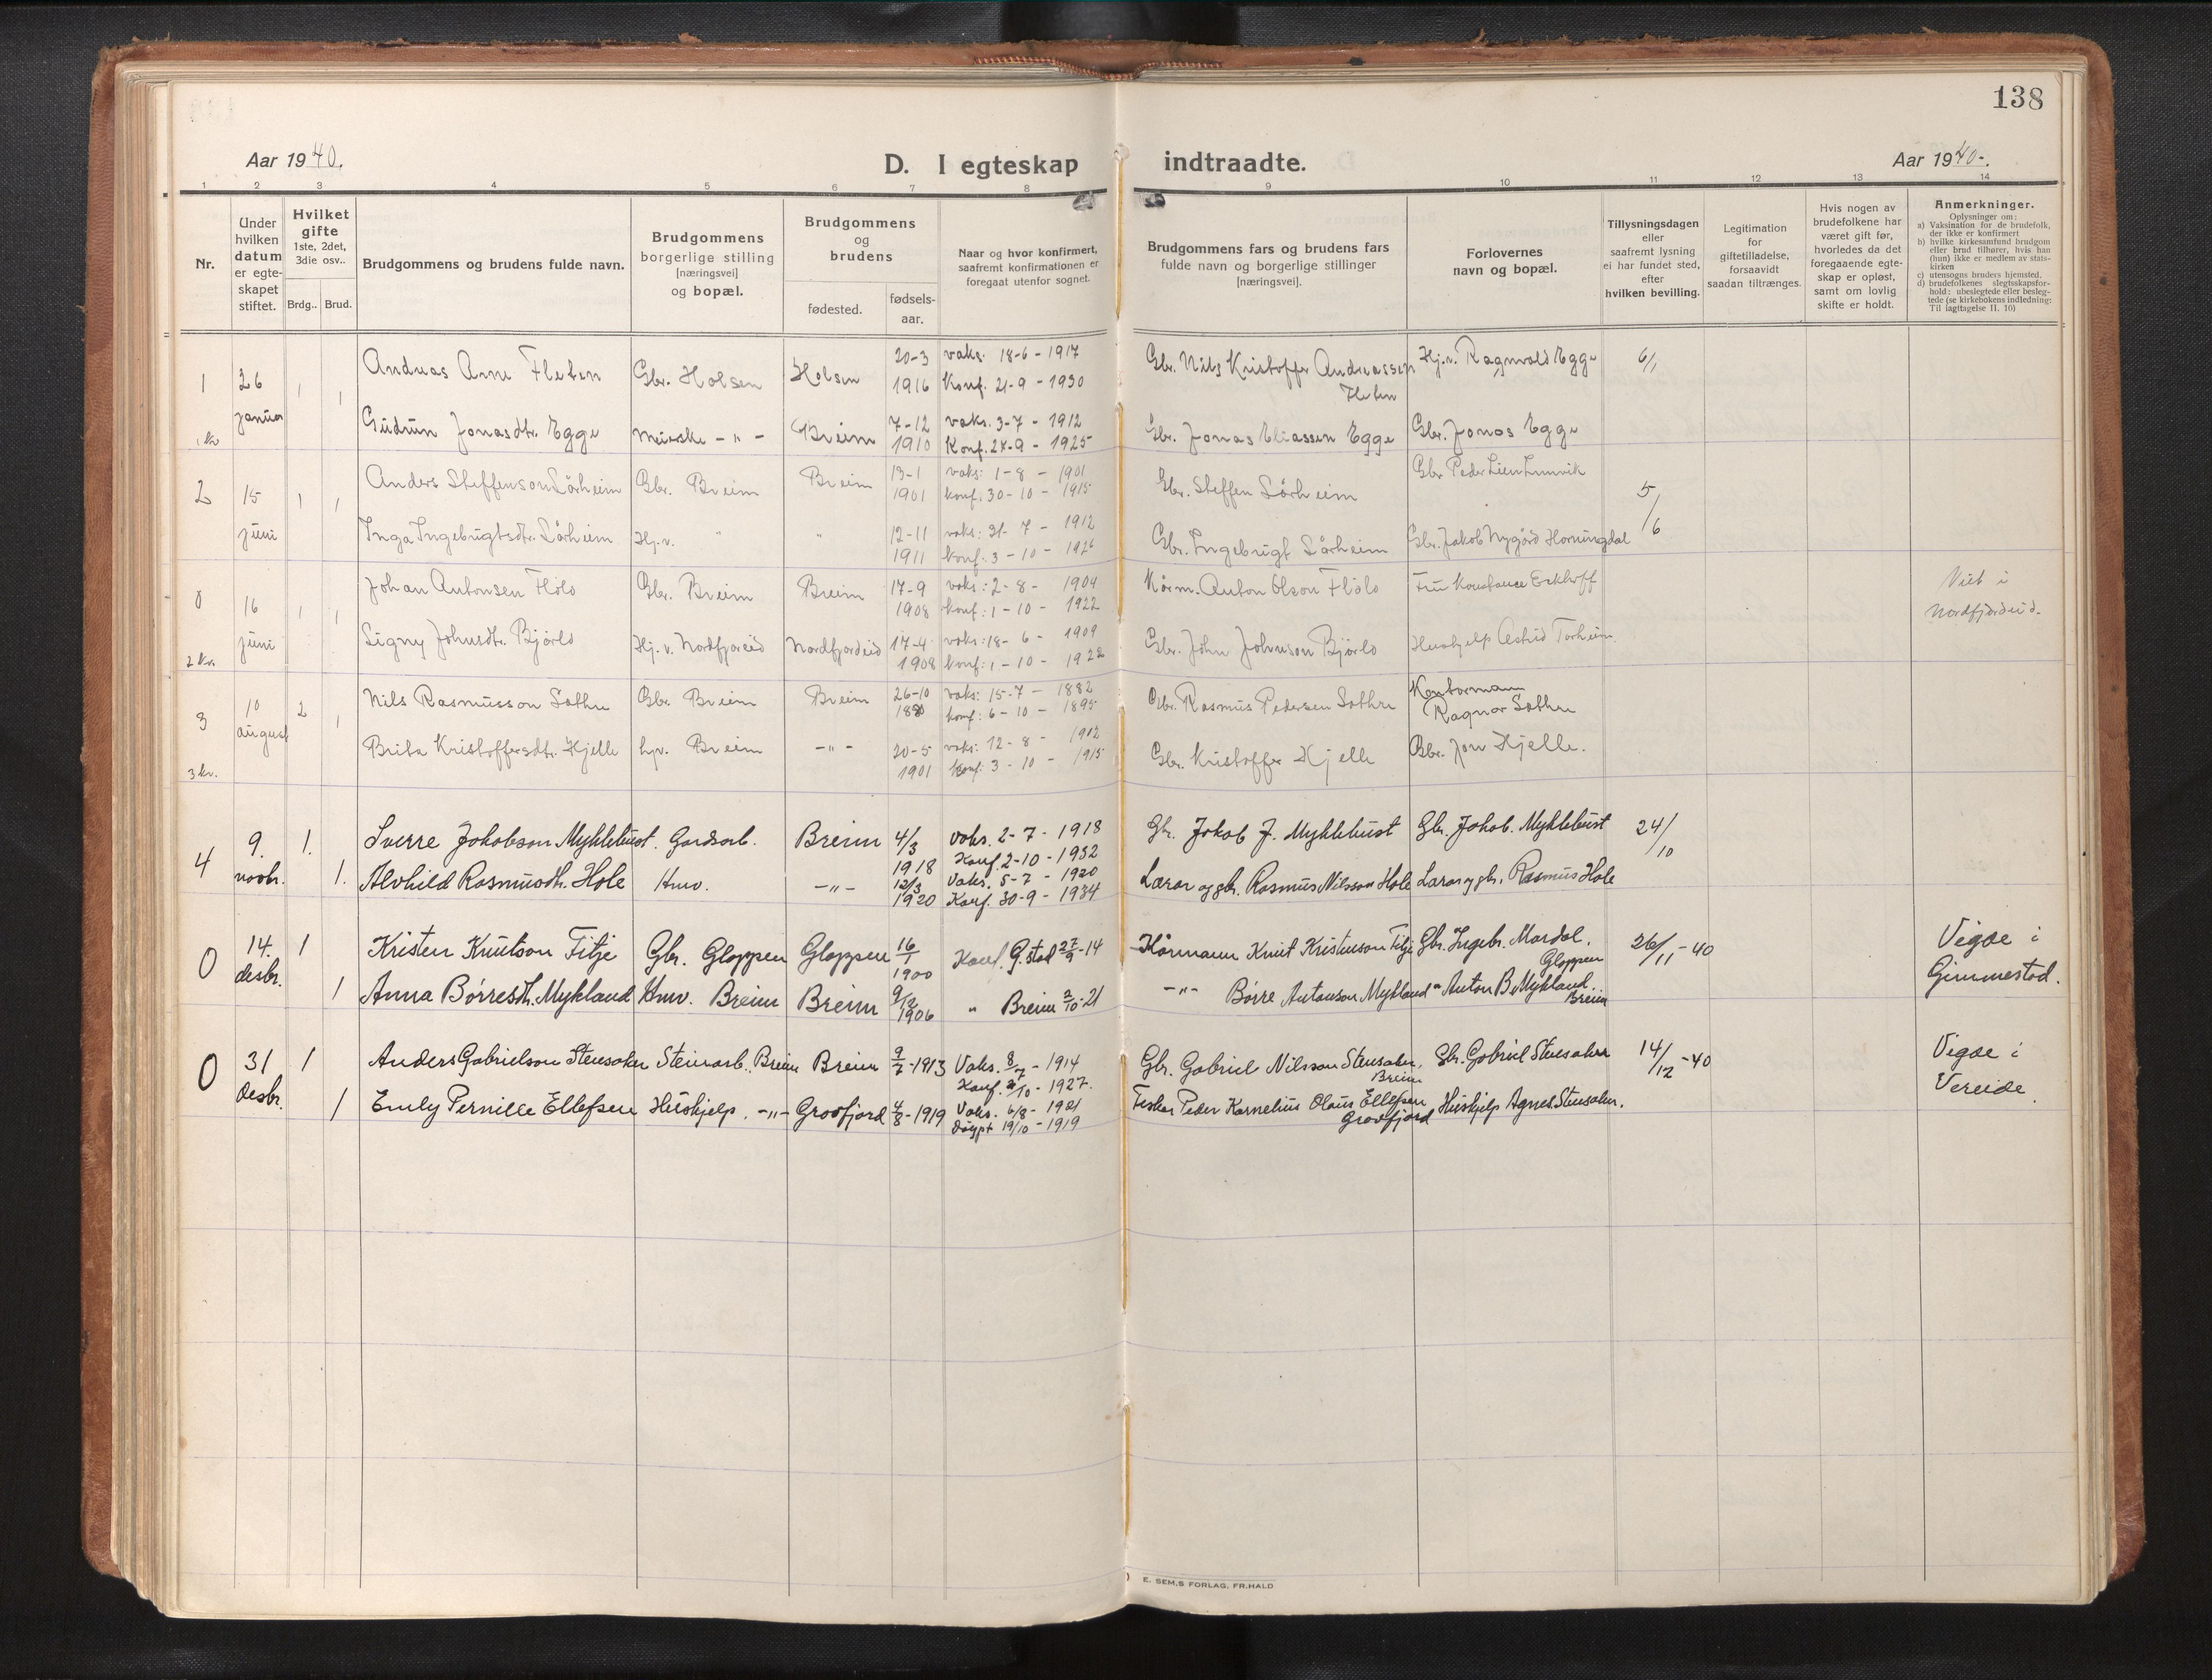 138
Aar 1940.
D. I egteskap indtraadte.
Aar 1940-.
1 2 3 4 5 6 7 8 9 10 11 12 13 14
Nr.
Under
hvilken
datum
er egte-
skapet
stiftet.
Hvilket
gifte
1ste, 2det,
3die osv..
Brdg.. Brud.
Brudgommens og brudens fulde navn.
Brudgommens
borgerlige stilling
[næringsvei]
og bopæl.
Brudgommens
og
brudens
fødested.
fødsels-
aar.
Naar og hvor konfirmert,
saafremt konfirmationen er
foregaat utenfor sognet.
Brudgommens fars og brudens fars
fulde navn og borgerlige stillinger
[næringsvei].
Forlovernes
navn og bopæl.
Tillysningsdagen
eller
saafremt lysning
ei har fundet sted,
efter
hvilken bevilling.
Legitimation
for
giftetilladelse,
forsaavidt
saadan tiltrænges.
Hvis nogen av
brudefolkene har
været gift før,
hvorledes da det
foregaaende egte-
skap er opløst,
samt om lovlig
skifte er holdt.
Anmerkninger.
Oplysninger om:
a) Vaksination for de brudefolk,
der ikke er konfirmert
b) hvilke kirkesamfund brudgom
eller brud tilhører, hvis han
(hun) ikke er medlem av stats-
kirken
c) utensogns bruders hjemsted.
d) brudefolkenes slegtsskapsfor-
hold: ubeslegtede eller besleg-
tede (se kirkebokens indledning:
Til iagttagelse II. 10)
1 26 januar 1 Andreas Arne Fleten Gbr. Holsen Holsen 20-3 1916 vaks. 18-6-1917
Konf. 21-9-1930 Gbr. Nils Kristoffer Andreassen Fleten Hj.v. Ragnvald Egge 6/1
1 kr 1 Gudrun Jonasdtr. Egge -"- Breim 7-12 1910 vaks. 3-7-1912
Konf. 27-9-1925 Gbr. Jonas Eliassen Egge Gbr. Jonas Egge
2 15 juni 1 Anders Steffenson Sårheim Gbr. Breim Breim 13-1 1901 vaks: 1-8-1901
konf: 30-10-1915 Gbr. Steffen Sårheim Gbr Peder Lien 5/6
1 Inga Ingebrigtsdtr. Sårheim Hj.v. " " 12-11 1911 vaks: 31-7-1912
konf: 3-10-1926 Gbr. Ingebrigt Sårheim Gbr. Jakob Nygård Hornindal
0 16 juni 1 Johan Antonsen Flølo Gbr. Breim Breim 17-9 1908 vaks: 2-8-1909
konf: 1-10-1922 Kårm. Anton Olson Flølo Fru Konstance Eckhoff Viet i
Nordfjordeid.
2 kr. 1 Signy Johnsdtr. Bjørlo Hj.v. Nordfjoreid Nordfjordeid 17-4 1908 vaks: 18-6-1909
konf: 1-10-1922 Gbr. John Johnson Bjørlo Hushjelp Astrid Torheim
3 10 august 2 Nils Rasmusson Sothre Gbr. Breim Breim 26-10 1880 vaks: 15-7-1882
konf: 6-10-1895 Gbr. Rasmus Pedersen Sothre Kontormann
Ragnar Sothre
3 kr. 1 Brita Kristoffersdtr. Hjelle hjv. Breim -"- 20-5 1901 vaks: 12-8-1902
Konf: 3-10-1915 Gbr. Kristoffer Hjelle Gbr. Jon Hjelle.
4 9. novbr. 1. Sverre Jakobson Myklebust. Gardsarb. Breim 4/3 1918 Vaks. 2-7-1918
Konf. 2-10-1932 Gbr. Jakob J. Myklebust Gbr. Jakob. Myklebust 24/10
1. Alvhild Rasmusdtr. Hole Hmv. -"- 12/3 1920 Vaks. 5-7-1920
Konf. 30-9-1934 Lærar og gbr. Rasmus Nilsson Hole Lærar og gbr. Rasmus Hole
0 14. desbr. 1 Kristen Knutson Fitje Gbr. Gloppen Gloppen 16/1 1900 Konf. G.stad 27/9-14 Kårmann Knut Kristenson Fitje Gbr. Ingebr. Mardal.
Gloppen 26/11-40 Vigde i
Gimmestad.
1 Anna Børresdt. Mykland Hmv. Breim Breim 9/12 1906 " Breim 2/10-21 -"- Børre Antonson Mykland " Anton B. Mykland
Breim
0 31 desbr. 1 Anders Gabrielson Stensaker Steinarb. Breim Breim 9/7-1913 Vaks. 8/7-1914
Konf. 2/10-1927. Gbr. Gabriel Nilsson Stensaker,
Breim Gbr. Gabriel Stensaker 14/12-40 Vigde i
Vereide.
1 Emly Pernille Ellefsen Hushjelp. -"- Grovfjord 4/8-1919 Vaks. 6/8-1921
Døypt 19/10-1919 Fiskar Peder Kornelius Olaus Ellefsen
Grovfjord Hushjelp Agnes Stensaker.
E. SEM.S FORLAG, FR.HALD